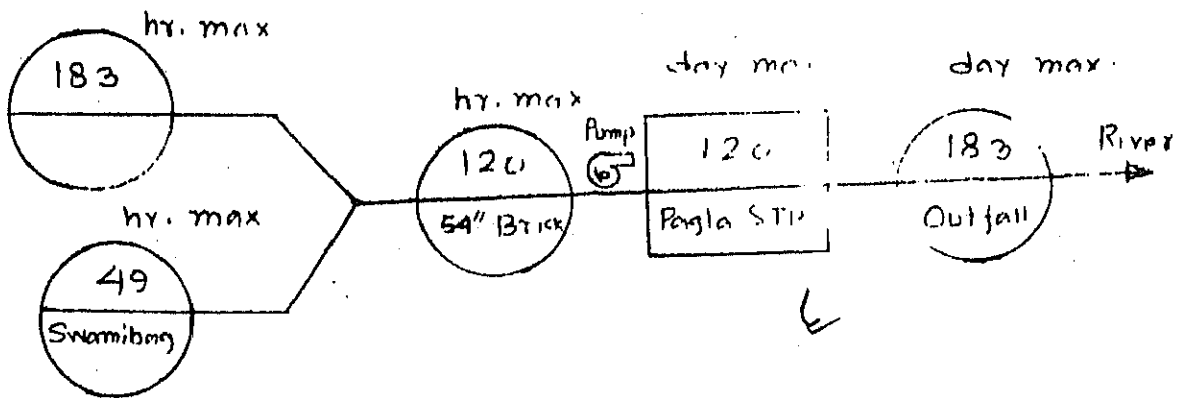 hr. max
183
hr. max
49
Swamibag
hr. max
120
54" Brick
Pump
day max.
120
Pagla STP
day max.
183
Outfall
River